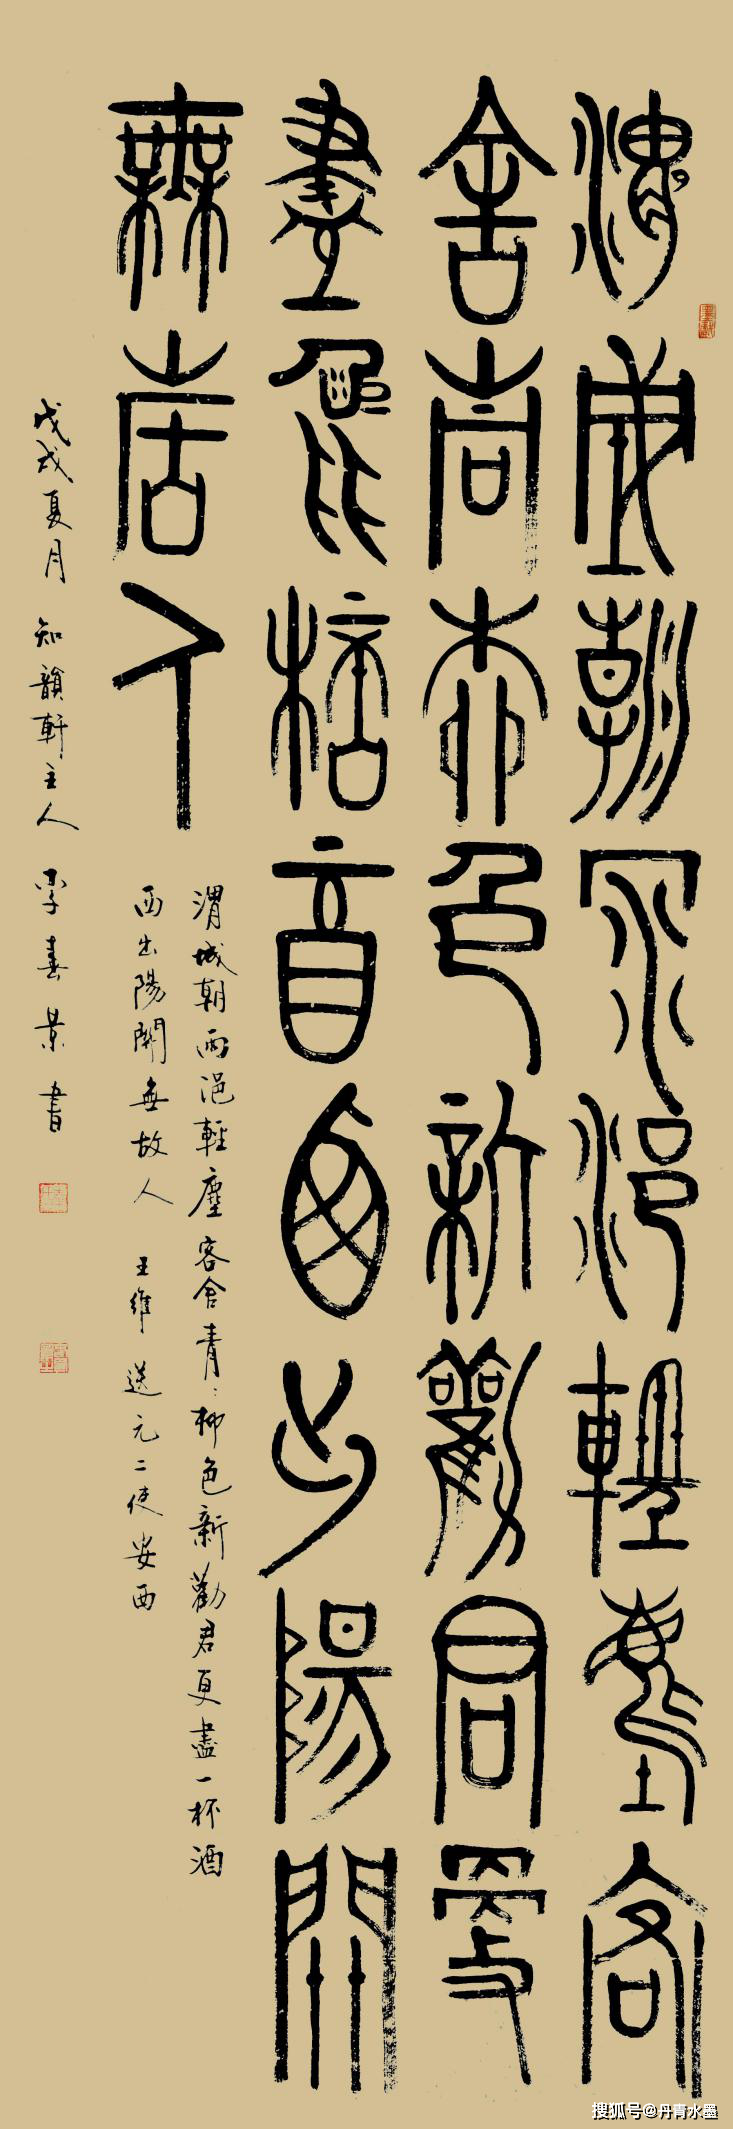 渭城朝雨浥輕塵客
舍青柳色新勸君更
盡一桮酒西出陽關
無故人
渭城朝雨浥輕塵客舍青〻柳色新勸君更盡一杯酒
西出陽關無故人 王維 送元二使安西
戊戌夏月 知韻軒主人 李喜景書
搜狐号@丹青水墨